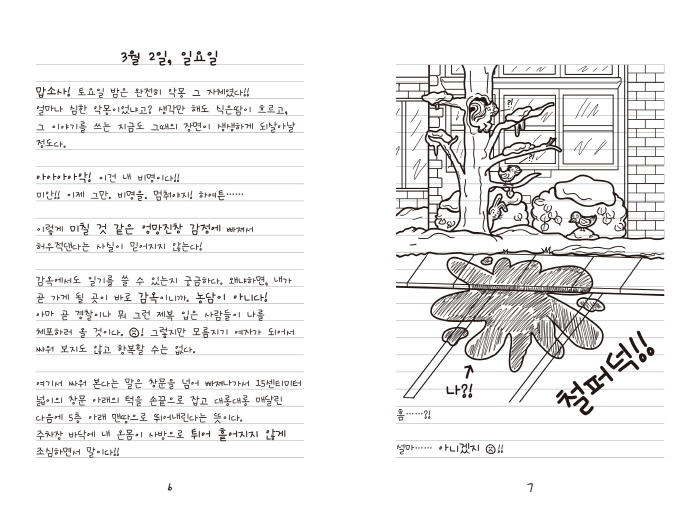 3월 2일, 일요일
맙소사! 토요일 밤은 완전히 악몽 그 자체였다!!
얼마나 심한 악몽이었냐고? 생각만 해도 식은땀이 흐르고,
그 이야기를 쓰는 지금도 그때의 장면이 생생하게 되살아날
정도다.
아아아아악! 이건 내 비명이다!!
미안!! 이제 그만. 비명을. 멈춰야지! 하여튼……
이렇게 미칠 것 같은 엉망진창 감정에 빠져서
허우적댄다는 사실이 믿어지지 않는다!
감옥에서도 일기를 쓸 수 있는지 궁금하다. 왜냐하면, 내가
곧 가게 될 곳이 바로 감옥이니까. 농담이 아니다!
아마 곧 경찰이나 뭐 그런 제복 입은 사람들이 나를
체포하러 올 것이다. ☹! 그렇지만 모름지기 여자가 되어서
싸워 보지도 않고 항복할 수는 없다.
여기서 싸워 본다는 말은 창문을 넘어 빠져나가서 15센티미터
넓이의 창문 아래의 턱을 손끝으로 잡고 대롱대롱 매달린
다음에 5층 아래 맨땅으로 뛰어내린다는 뜻이다.
주차장 바닥에 내 온몸이 사방으로 튀어 흩어지지 않게
조심하면서 말이다!!
6
?!
나?!
철퍼덕!!
흠……?!
설마…… 아니겠지 ☹!!
7